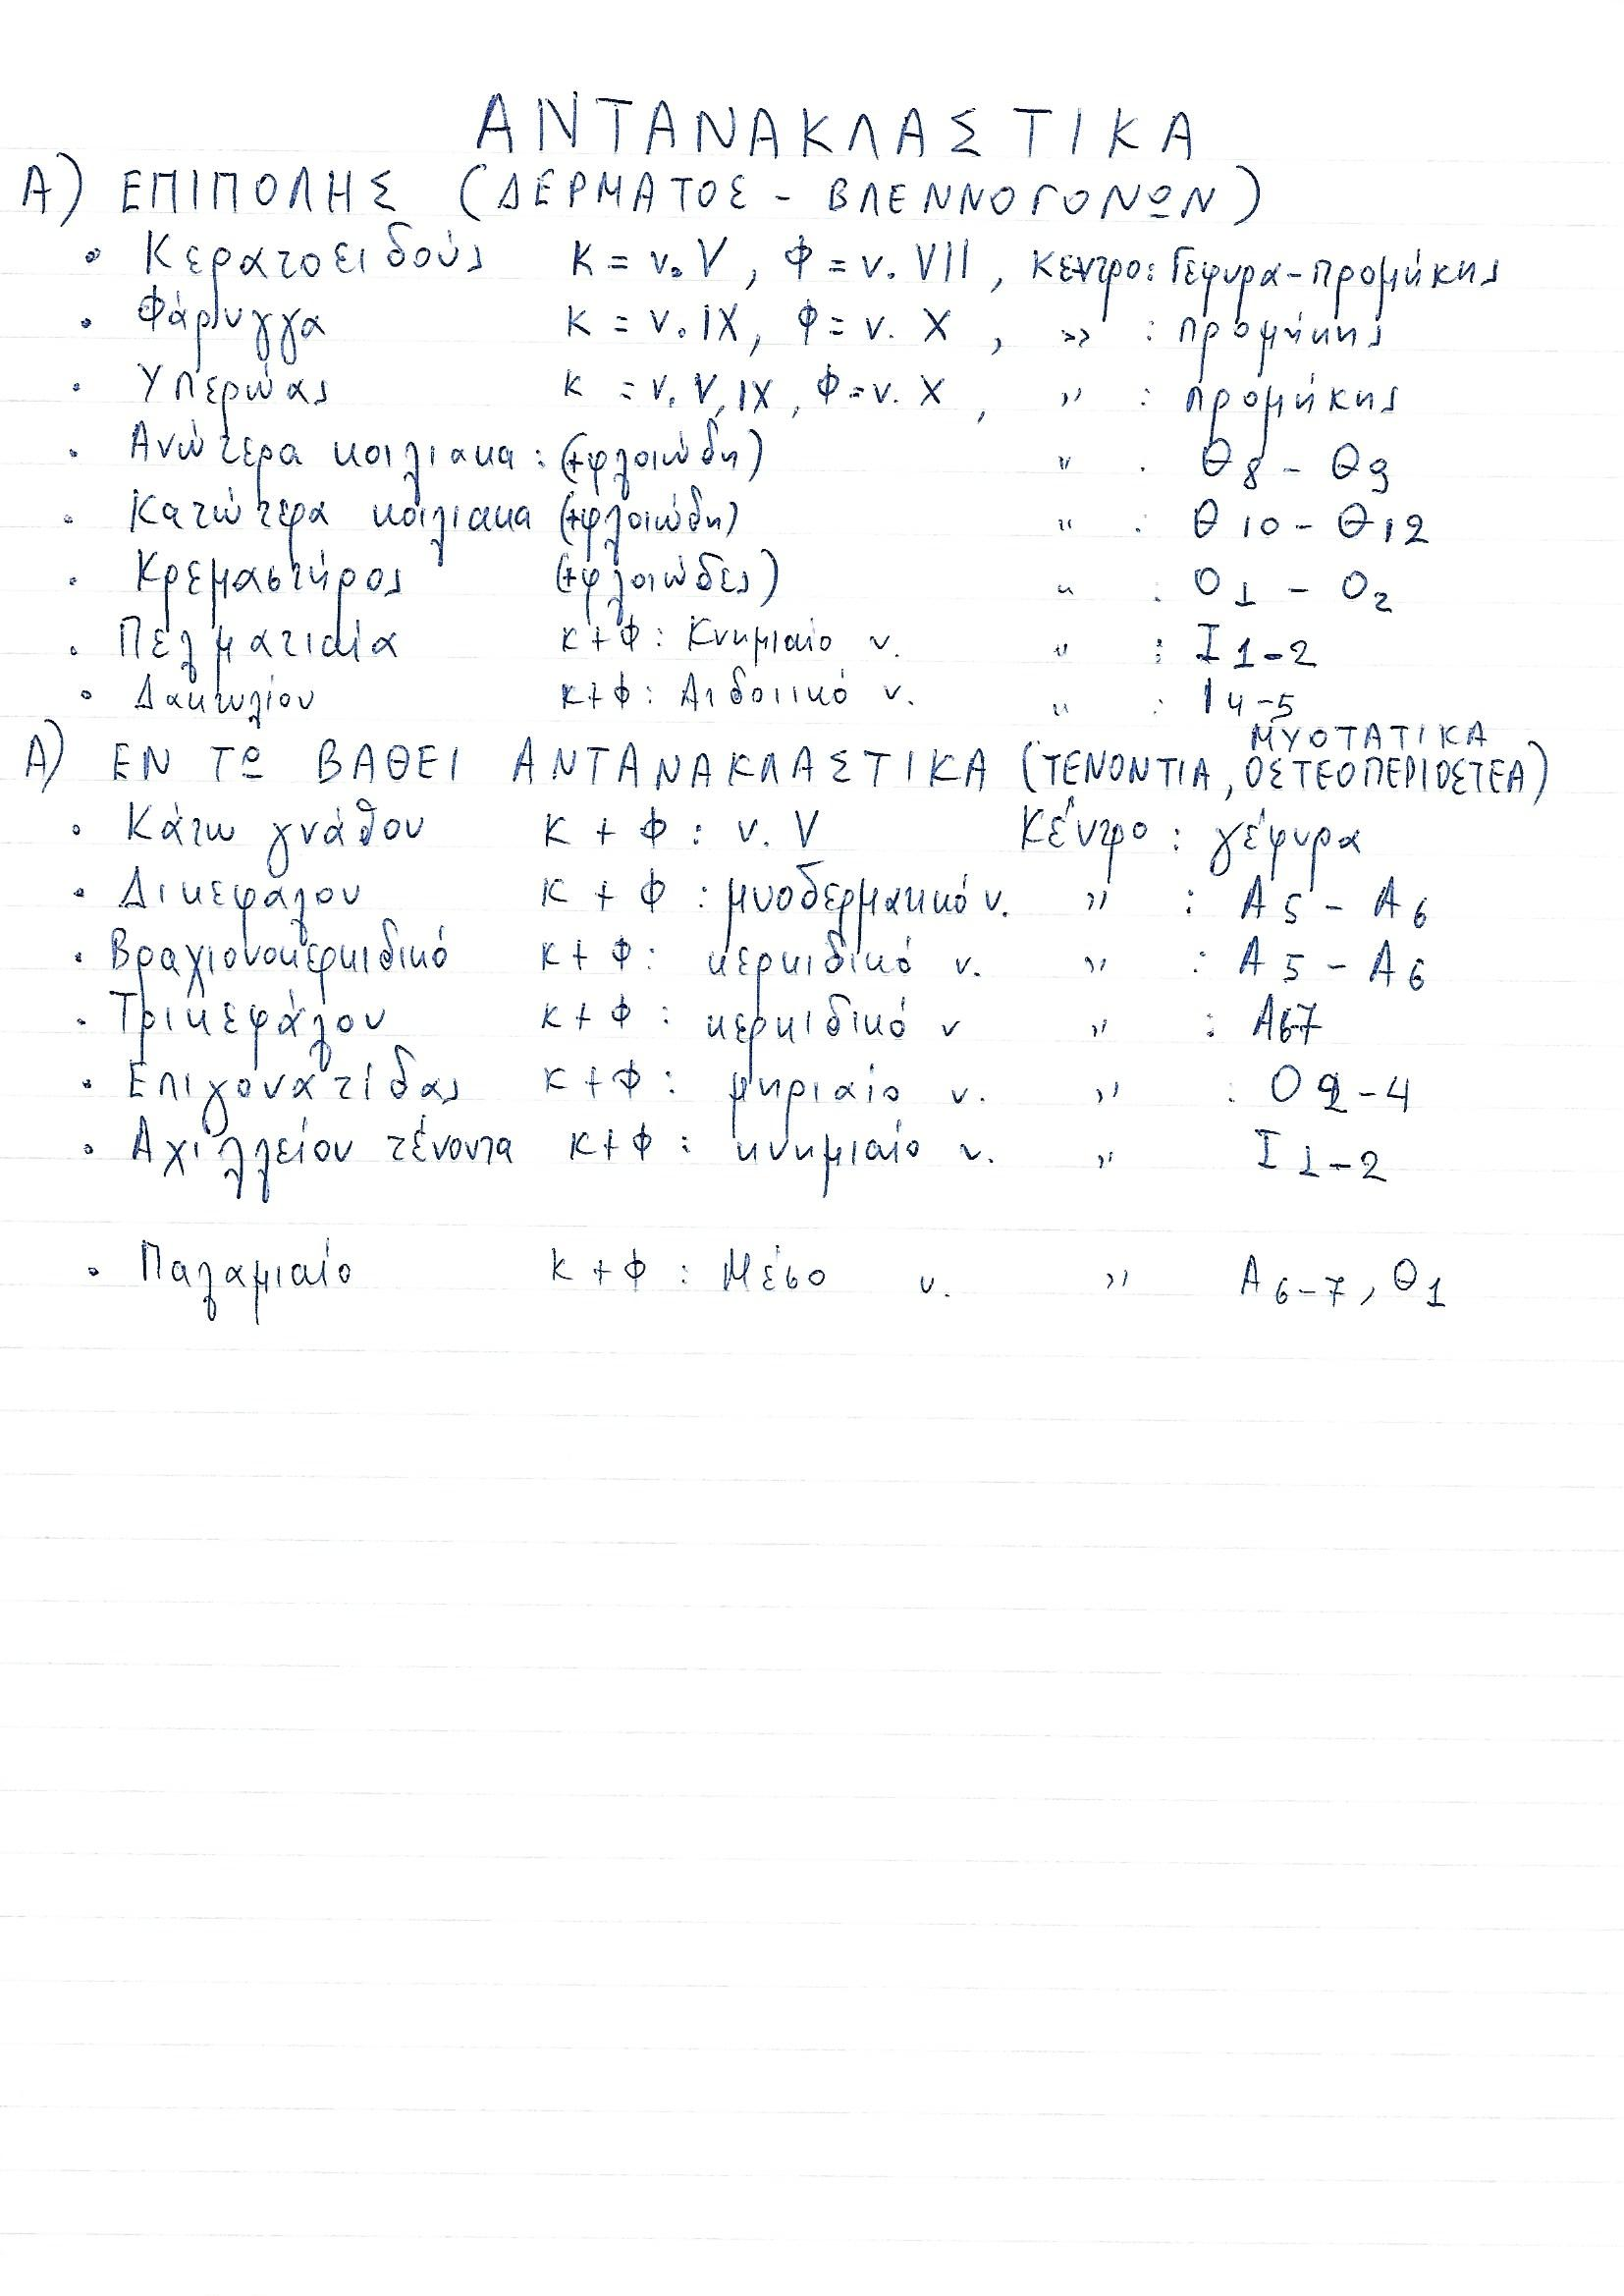 ΑΝΤΑΝΑΚΛΑΣΤΙΚΑ
Α) ΕΠΙΠΟΛΗΣ (ΔΕΡΜΑΤΟΣ - ΒΛΕΝΝΟΓΟΝΩΝ)
• Κερατοειδούς Κ = ν. V, Φ = ν. VII, Κέντρο: Γέφυρα-προμήκης
• Φάρυγγα Κ = ν. IX, Φ = ν. X, » : προμήκης
• Υπερώας Κ = ν. V, IX, Φ = ν. X, » : προμήκης
• Ανώτερα κοιλιακα: (+φλοιώδη) " : Θ8 - Θ9
• Κατώτερα κοιλιακα (+φλοιώδη) " : Θ10 - Θ12
• Κρεμαστήρος (+φλοιώδες) " : Ο1 - Ο2
• Πελματιαία Κ+Φ: Κνημιαίο ν. " : Ι1-2
• Δακτυλίου Κ+Φ: Αιδοιικό ν. " : Ι4-5
ΜΥΟΤΑΤΙΚΑ
Α) ΕΝ ΤΩ ΒΑΘΕΙ ΑΝΤΑΝΑΚΛΑΣΤΙΚΑ (ΤΕΝΟΝΤΙΑ, ΟΣΤΕΟΠΕΡΙΟΣΤΕΑ)
• Κάτω γνάθου Κ + Φ: ν. V Κέντρο: γέφυρα
• Δικεφαλου Κ + Φ: μυοδερματικό ν. » : Α5 - Α6
• Βραχιονοκερκιδικό Κ+Φ: κερκιδικό ν. » : Α5 - Α6
• Τρικεφάλου Κ+Φ: κερκιδικό ν » : Α6-7
• Επιγονατίδας Κ+Φ: μηριαίο ν. » : Ο2-4
• Αχιλλείου τένοντα Κ+Φ: κνημιαίο ν. » Ι1-2
• Παλαμιαίο Κ+Φ: Μέσο ν. » Α6-7, Θ1